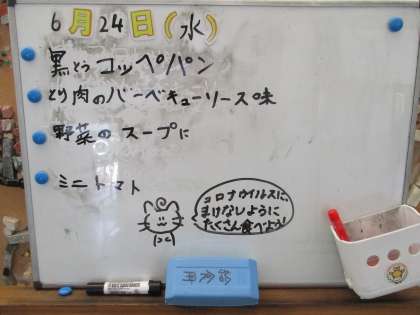 6月24日(水)
黒とうコッペパン
とり肉のバーベキューソース味
野菜のスープに
ミニトマト
コロナウイルスに、
まけなしように
たくさん食べよう!